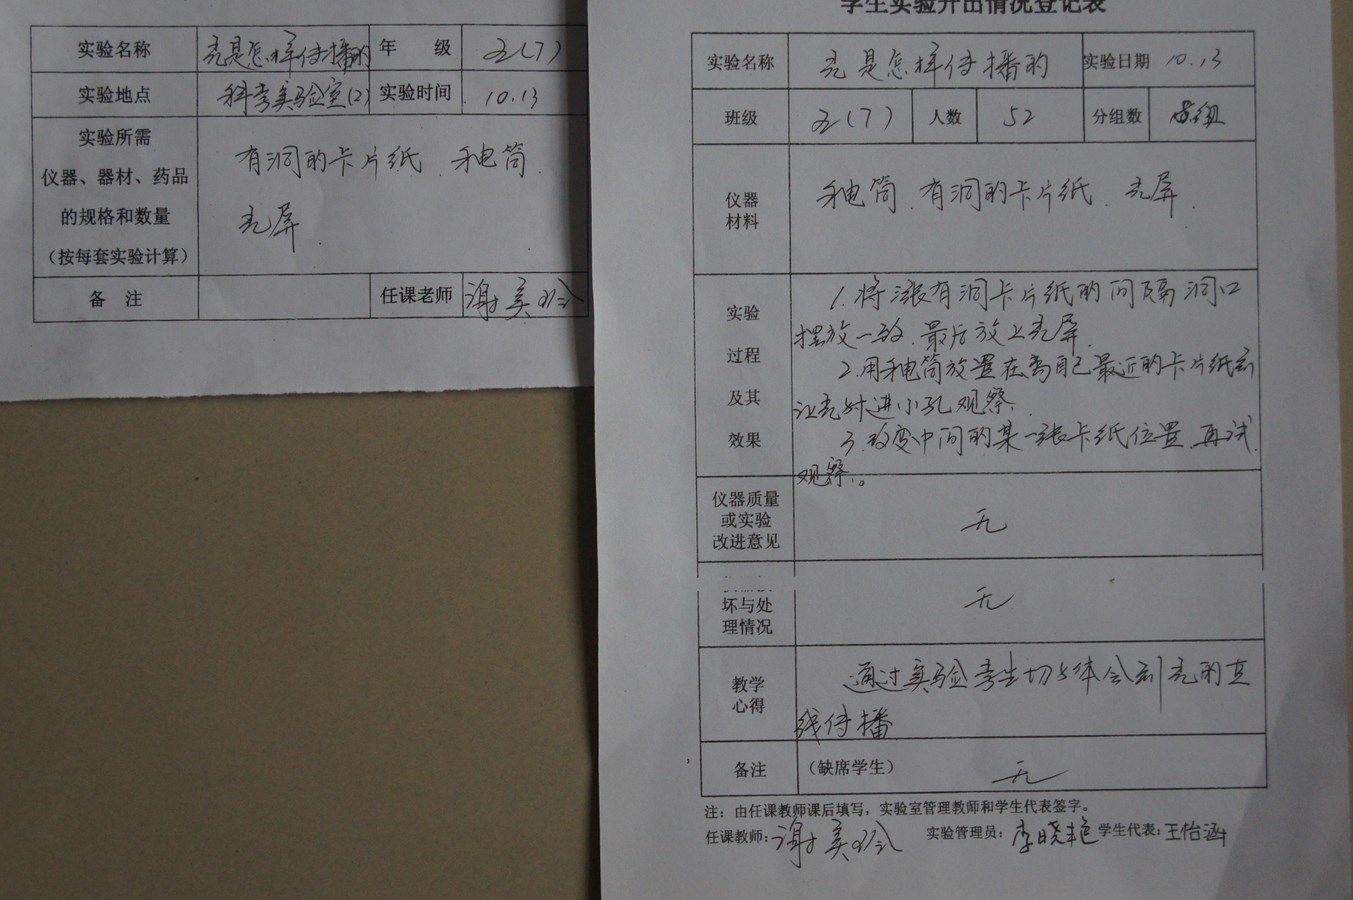 实验名称 光是怎样传播的 年 级 五(7)
实验地点 科学实验室(2) 实验时间 10.13
实验所需
仪器、器材、药品
的规格和数量
(按每套实验计算)
有洞的卡片纸、手电筒、
光屏.
备 注 任课老师 谢美玲
学生实验开出情况登记表
实验名称 光是怎样传播的 实验日期 10.13
班级 五(7) 人数 52 分组数
仪器
材料
手电筒、有洞的卡片纸、光屏.
实验
过程
及其
效果
1.将张有洞卡片纸的间隔洞口
摆放一致.最后放上光屏.
2.用手电筒放置在离自己最近的卡片纸前
让光对进小孔观察.
3.改变中间的某一张卡纸位置.再试
观察.。
仪器质量
或实验
改进意见
无
坏与处
理情况
无
教学
心得
通过实验学生切身体会到光的直
线传播
备注 (缺席学生) 无
注：由任课教师课后填写，实验室管理教师和学生代表签字。
任课教师：谢美玲 实验管理员：李晓艳 学生代表：王怡涵